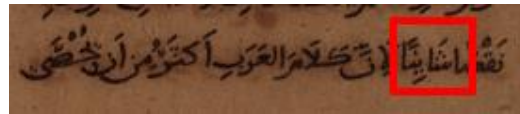 نَقْصًا شَايِنًا لِانَّ كَلَامَ العَرَبِ اَكثَرُ مِن اَن يُحْصَى